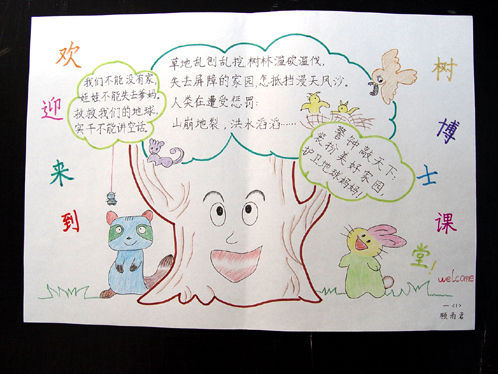 欢迎来到
我们不能没有家,
娃娃不能失去爹妈。
救救我们的地球,
实干不能讲空话。
草地乱刨乱挖,树林滥砍滥伐,
失去屏障的家园,怎抵挡漫天风沙。
人类在遭受惩罚:
山崩地裂,洪水滔滔……
警钟敲天下:
装扮美好家园,
护卫地球妈妈!
树博士课堂!
welcome
一<1>
顾雨君